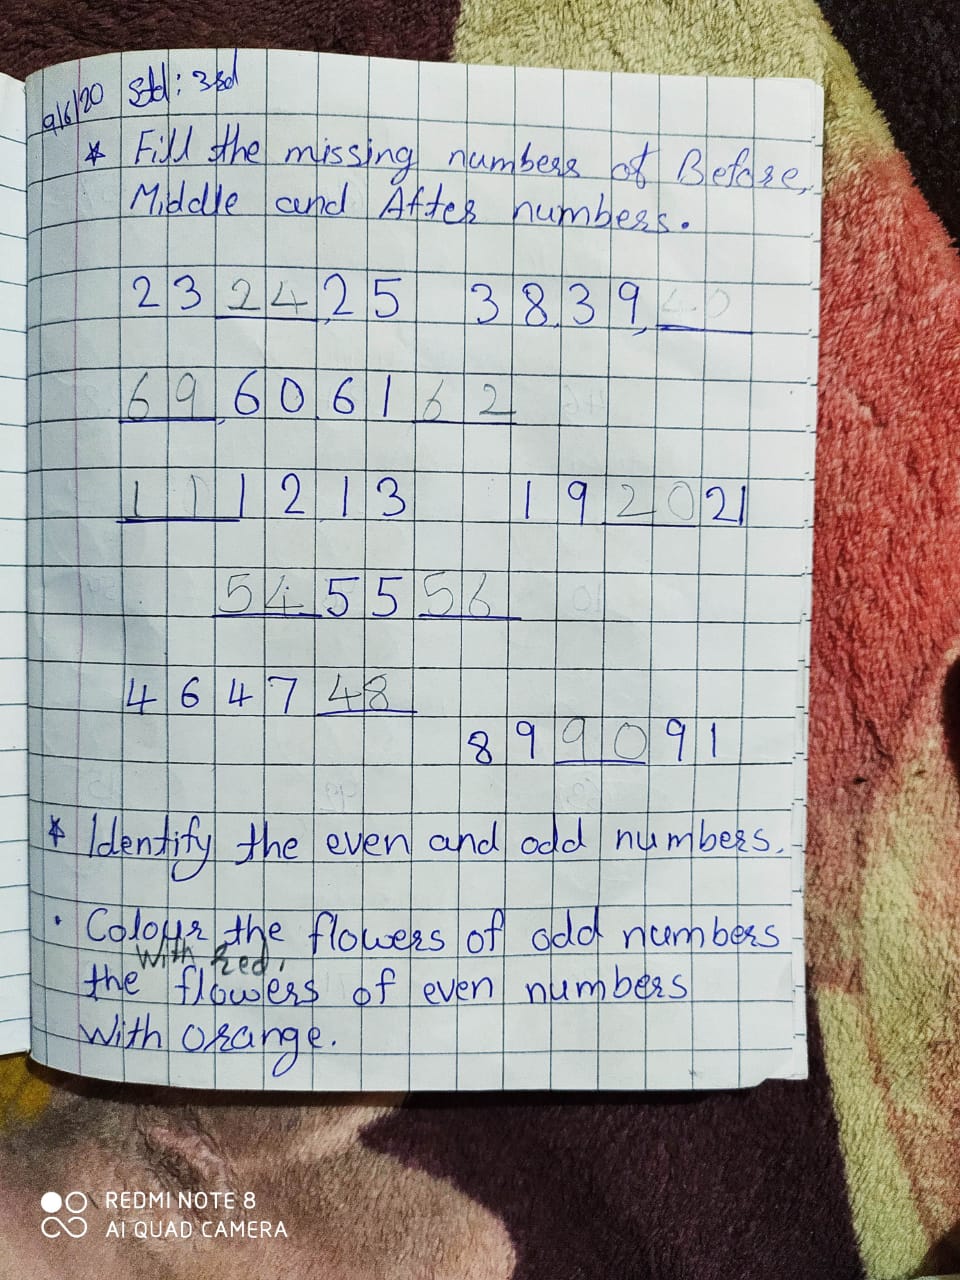 9/6/20 Std: 3rd
* Fill the missing numbers of Before,
Middle and After numbers.
23 24, 25 38, 39, 40
69, 60, 61 62
11 12 13 19 20 21
54 55 56
46 47 48
89 90 91
* Identify the even and odd numbers.
• Colour the flowers of odd numbers
with red,
the flowers of even numbers
with orange.
REDMI NOTE 8
AI QUAD CAMERA